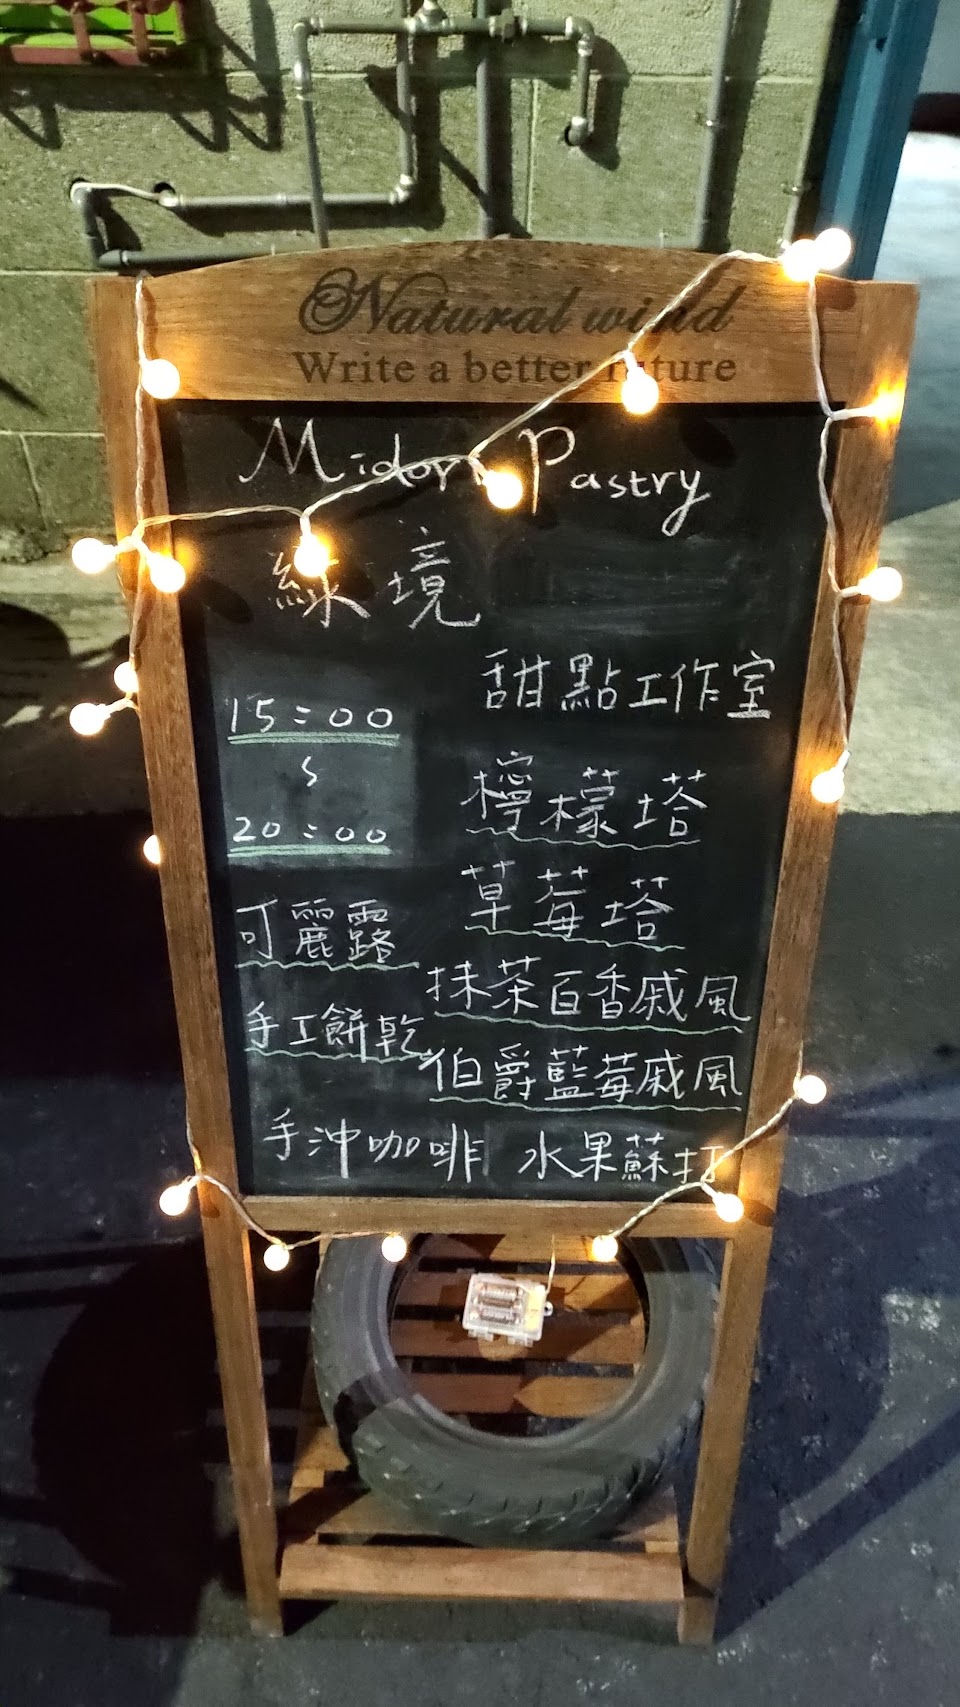 Natural wind
Write a better future
Midori Pastry
綠境
甜點工作室
15:00
~
20:00
檸檬塔
草莓塔
可麗露
抹茶百香戚風
手工餅乾
伯爵藍莓戚風
手沖咖啡 水果蘇打